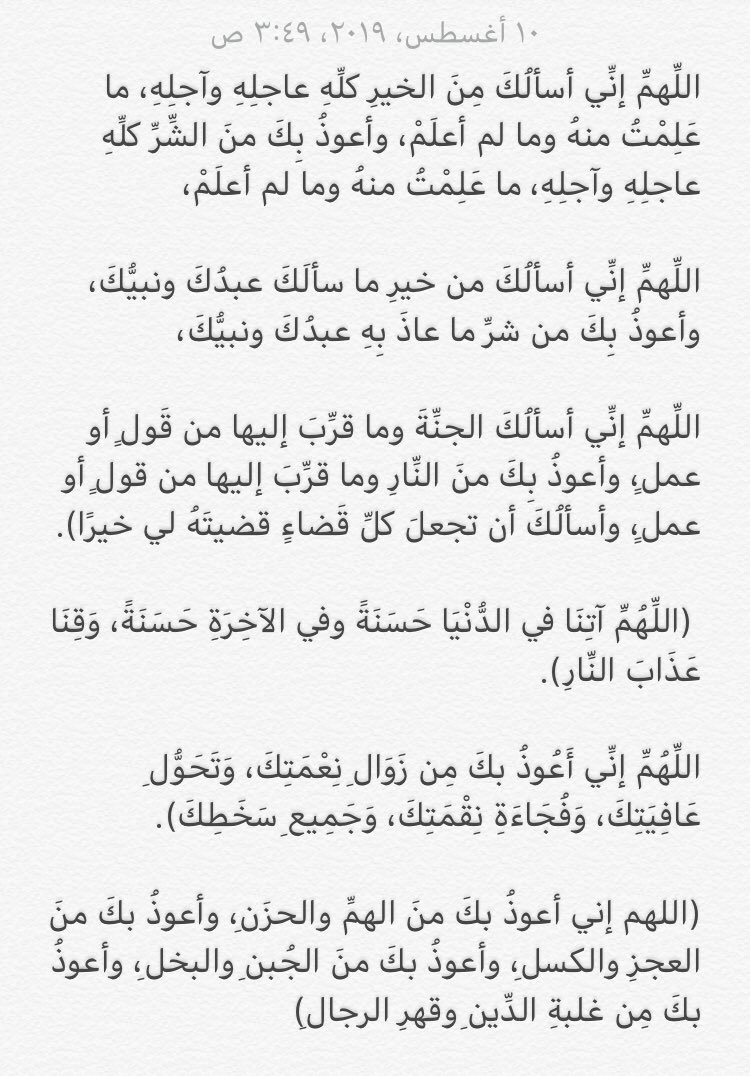 ١٠ أغسطس، ٢٠١٩، ٣:٤٩ ص
اللِّهمِّ إنِّي أسألُكَ مِنَ الخيرِ كلِّهِ عاجلِهِ وآجلِهِ، ما
عَلِمْتُ منهُ وما لم أعلَمْ، وأعوذُ بِكَ منَ الشِّرِّ كلِّهِ
عاجلِهِ وآجلِهِ، ما عَلِمْتُ منهُ وما لم أعلَمْ،
اللِّهمِّ إنِّي أسألُكَ من خيرِ ما سألَكَ عبدُكَ ونبيُّكَ،
وأعوذُ بِكَ من شرِّ ما عاذَ بِهِ عبدُكَ ونبيُّكَ،
اللِّهمِّ إنِّي أسألُكَ الجنِّةَ وما قرِّبَ إليها من قَولٍ أو
عملٍ، وأعوذُ بِكَ منَ النِّارِ وما قرِّبَ إليها من قولٍ أو
عملٍ، وأسألُكَ أن تجعلَ كلِّ قَضاءٍ قضيتَهُ لي خيرًا).
(اللِّهُمِّ آتِنَا في الدُّنْيَا حَسَنَةً وفي الآخِرَةِ حَسَنَةً، وَقِنَا
عَذَابَ النِّارِ).
اللِّهُمِّ إنِّي أَعُوذُ بكَ مِن زَوَالِ نِعْمَتِكَ، وَتَحَوُّلِ
عَافِيَتِكَ، وَفُجَاءَةِ نِقْمَتِكَ، وَجَمِيعِ سَخَطِكَ).
(اللهم إني أعوذُ بكَ منَ الهمِّ والحزَنِ، وأعوذُ بكَ منَ
العجزِ والكسلِ، وأعوذُ بكَ منَ الجُبنِ والبخلِ، وأعوذُ
بكَ مِن غلبةِ الدِّينِ وقهرِ الرجالِ)